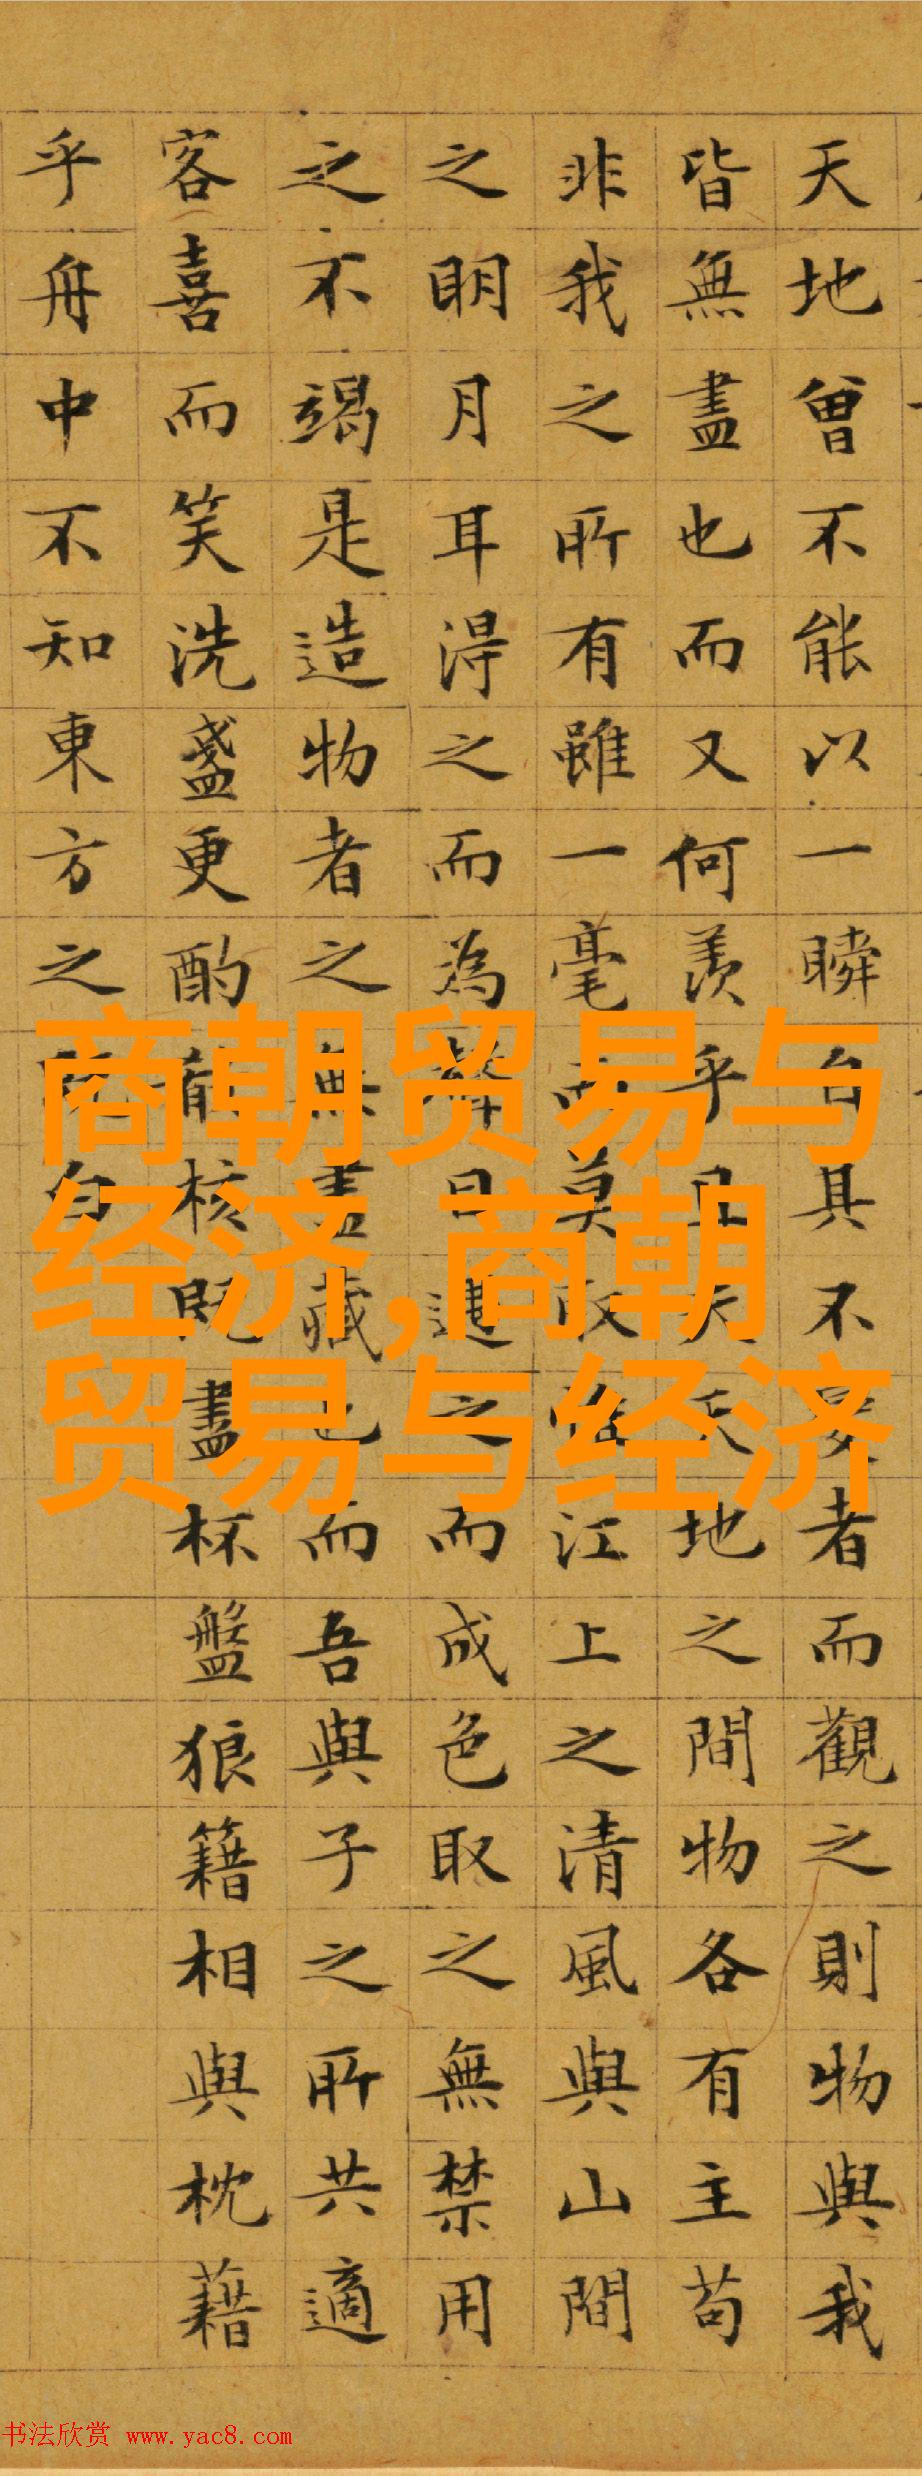 天地曾不能以一瞬自其不變者而觀之則物與我
皆無盡也而又何羨乎且夫天地之間物各有主苟
非我之所有雖一毫而莫取惟江上之清風與山間
之明月耳得之而為聲目遇之而成色取之無禁用
之不竭是造物者之無盡藏也而吾與子之所共適
客喜而笑洗盞更酌核既盡杯盤狼籍相與枕藉
乎舟中不知東方之既白
商朝贸易与
经济,商朝
贸易与经济
书法欣赏 www.yac8.com